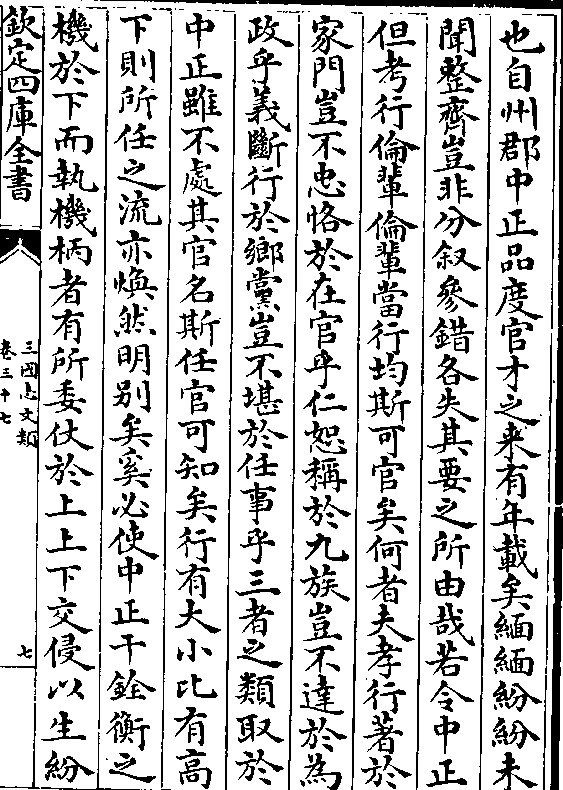 也自州郡中正品度官才之来有年載矣緬緬紛紛未
聞整齊豈非分叙參錯各失其要之所由哉若令中正
但考行倫輩倫輩當行均斯可官矣何者夫孝行著於
家門豈不忠恪於在官乎仁恕稱於九族豈不達於為
政乎義斷行於鄉黨豈不堪於任事乎三者之類取於
中正雖不處其官名斯任官可知矣行有大小比有高
下則所任之流亦煥然明别矣奚必使中正干銓衡之
機於下而執機柄者有所委仗於上上下交侵以生紛
欽定四庫全書
三國志文類
卷三十七
七